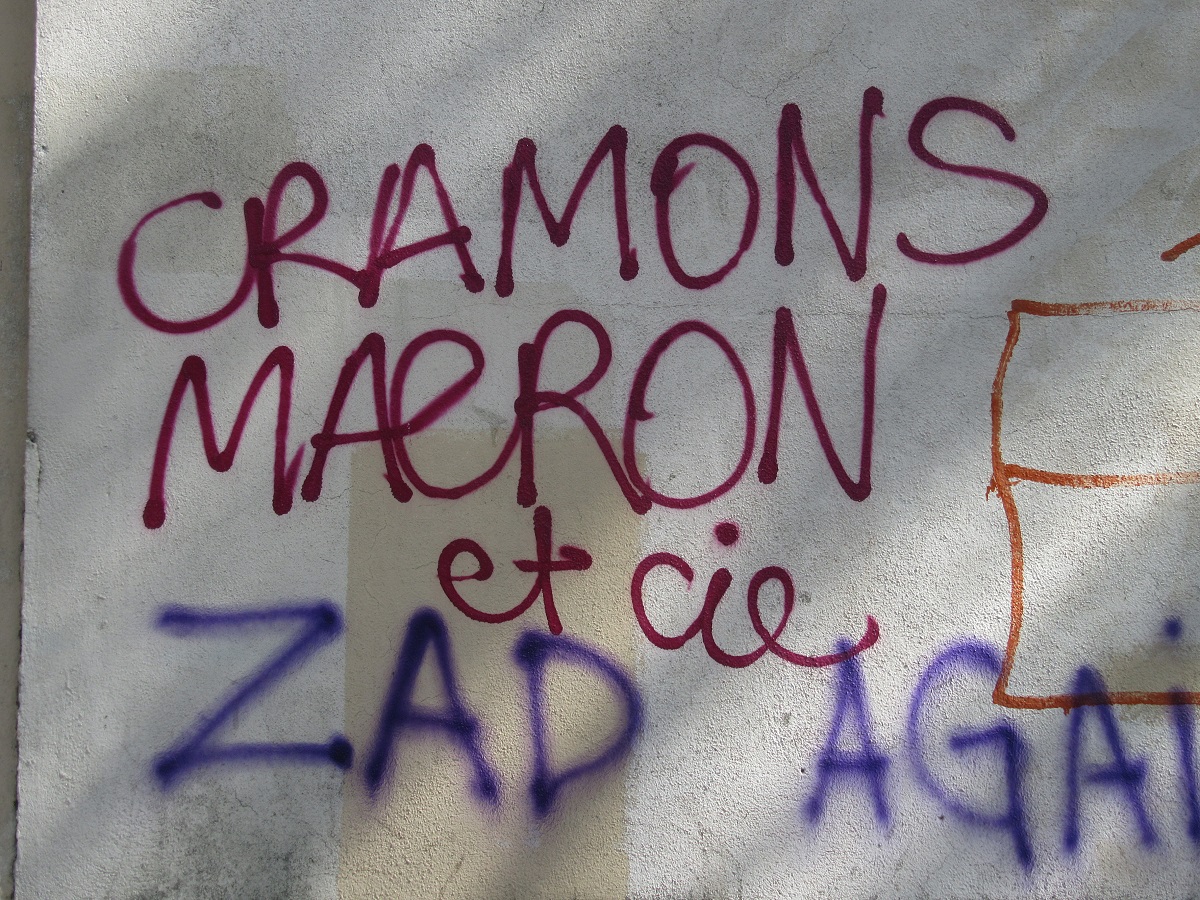 CRAMONS
MACRON
et cie
ZAD AGAi